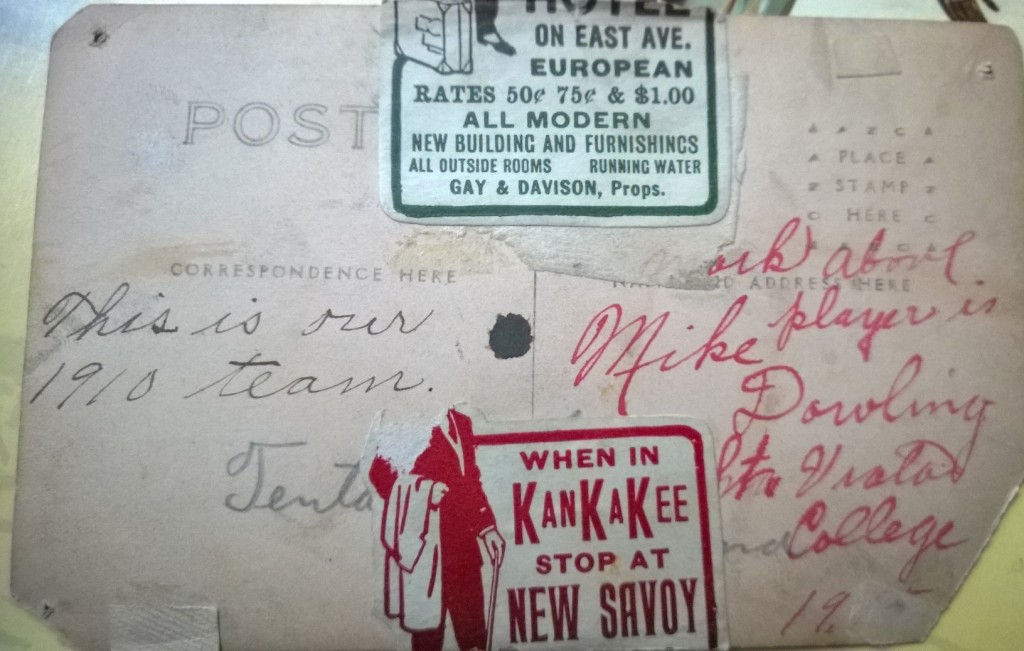 HOTEL
ON EAST AVE.
EUROPEAN
RATES 50¢ 75¢ & $1.00
ALL MODERN
NEW BUILDING AND FURNISHINGS
ALL OUTSIDE ROOMS RUNNING WATER
GAY & DAVISON, Props.
POST
PLACE
STAMP
HERE
CORRESPONDENCE HERE
ADDRESS HERE
This is our
1910 team.
above
player is
Mike
Dowling
Viator
College
19
WHEN IN
KANKAKEE
STOP AT
NEW SAVOY